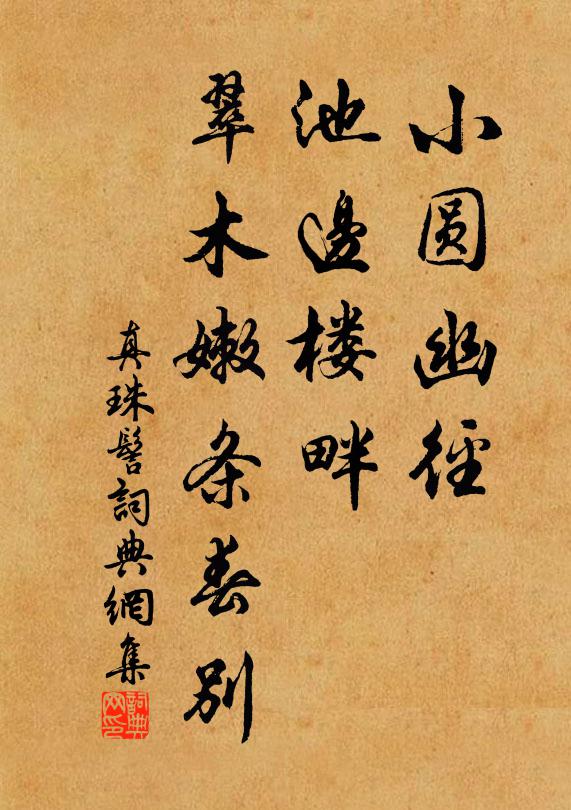 小圆幽径
池邊楼畔
翠木嫩条春别
真珠髻詞典網集
詞典网印